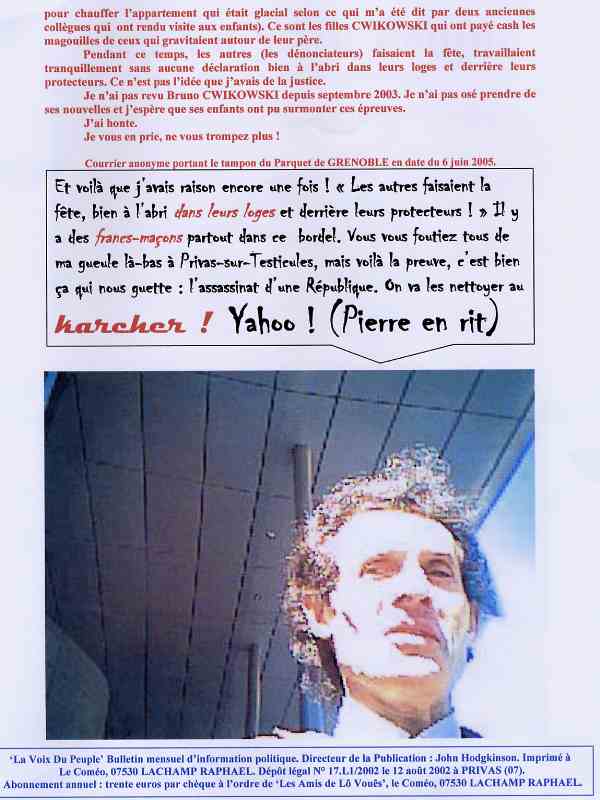 pour chauffer l'appartement qui était glacial selon ce qui m'a été dit par deux anciennes
collègues qui ont rendu visite aux enfants). Ce sont les filles CWIKOWSKI qui ont payé cash les
magouilles de ceux qui gravitaient autour de leur père.
Pendant ce temps, les autres (les dénonciateurs) faisaient la fête, travaillaient
tranquillement sans aucune déclaration bien à l'abri dans leurs loges et derrière leurs
protecteurs. Ce n'est pas l'idée que j'avais de la justice.
Je n'ai pas revu Bruno CWIKOWSKI depuis septembre 2003. Je n'ai pas osé prendre de
ses nouvelles et j'espère que ses enfants ont pu surmonter ces épreuves.
J'ai honte.
Je vous en prie, ne vous trompez plus !
Courrier anonyme portant le tampon du Parquet de GRENOBLE en date du 6 juin 2005.
Et voilà que j'avais raison encore une fois ! « Les autres faisaient la
fête, bien à l'abri dans leurs loges et derrière leurs protecteurs ! » Il y
a des francs-maçons partout dans ce bordel. Vous vous foutiez tous de
ma gueule là-bas à Privas-sur-Testicules, mais voilà la preuve, c'est bien
ça qui nous guette : l'assassinat d'une République. On va les nettoyer au
karcher ! Yahoo ! (Pierre en rit)
'La Voix Du Peuple' Bulletin mensuel d'information politique. Directeur de la Publication : John Hodgkinson. Imprimé à
Le Coméo, 07530 LACHAMP RAPHAEL. Dépôt légal N° 17.L1/2002 le 12 août 2002 à PRIVAS (07).
Abonnement annuel : trente euros par chèque à l'ordre de 'Les Amis de Lô Vouês', le Coméo, 07530 LACHAMP RAPHAEL.